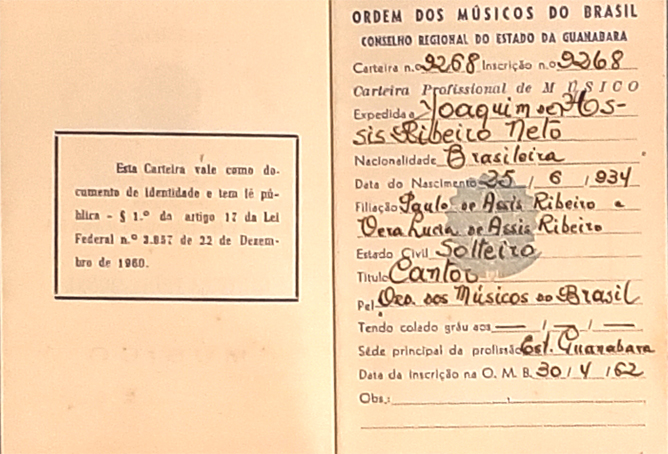 Esta Carteira vale como do-
cumento de identidade e tem fé pú-
blica - § 1.º do artigo 17 da Lei
Federal n.º 3.857 de 22 de Dezem-
bro de 1960.
ORDEM DOS MÚSICOS DO BRASIL
CONSELHO REGIONAL DO ESTADO DA GUANABARA
Carteira n.o 9268 Inscrição n.o 9268
Carteira Profissional de MÚSICO
Expedida a Joaquim de As-
sis Ribeiro Neto
Nacionalidade Brasileira
Data do Nascimento 25 / 6 / 934
Filiação Paulo de Assis Ribeiro e
Vera Lucia de Assis Ribeiro
Estado Civil Solteiro
Título Cantor
Pel Ord. dos Músicos do Brasil
Tendo colado gráu aos — / — / —
Séde principal da profissão Est. Guanabara
Data da inscrição na O. M. B. 30 / 4 / 62
Obs.: